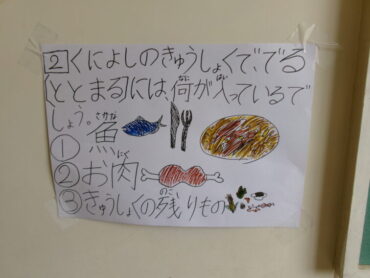 2 くによしのきゅうしょくで、でる
(ととまる)には、荷が入(はい)っているで
しょう。
① 魚(さかな)
② お肉(にく)
③ きゅうしょくの残(のこ)りもの